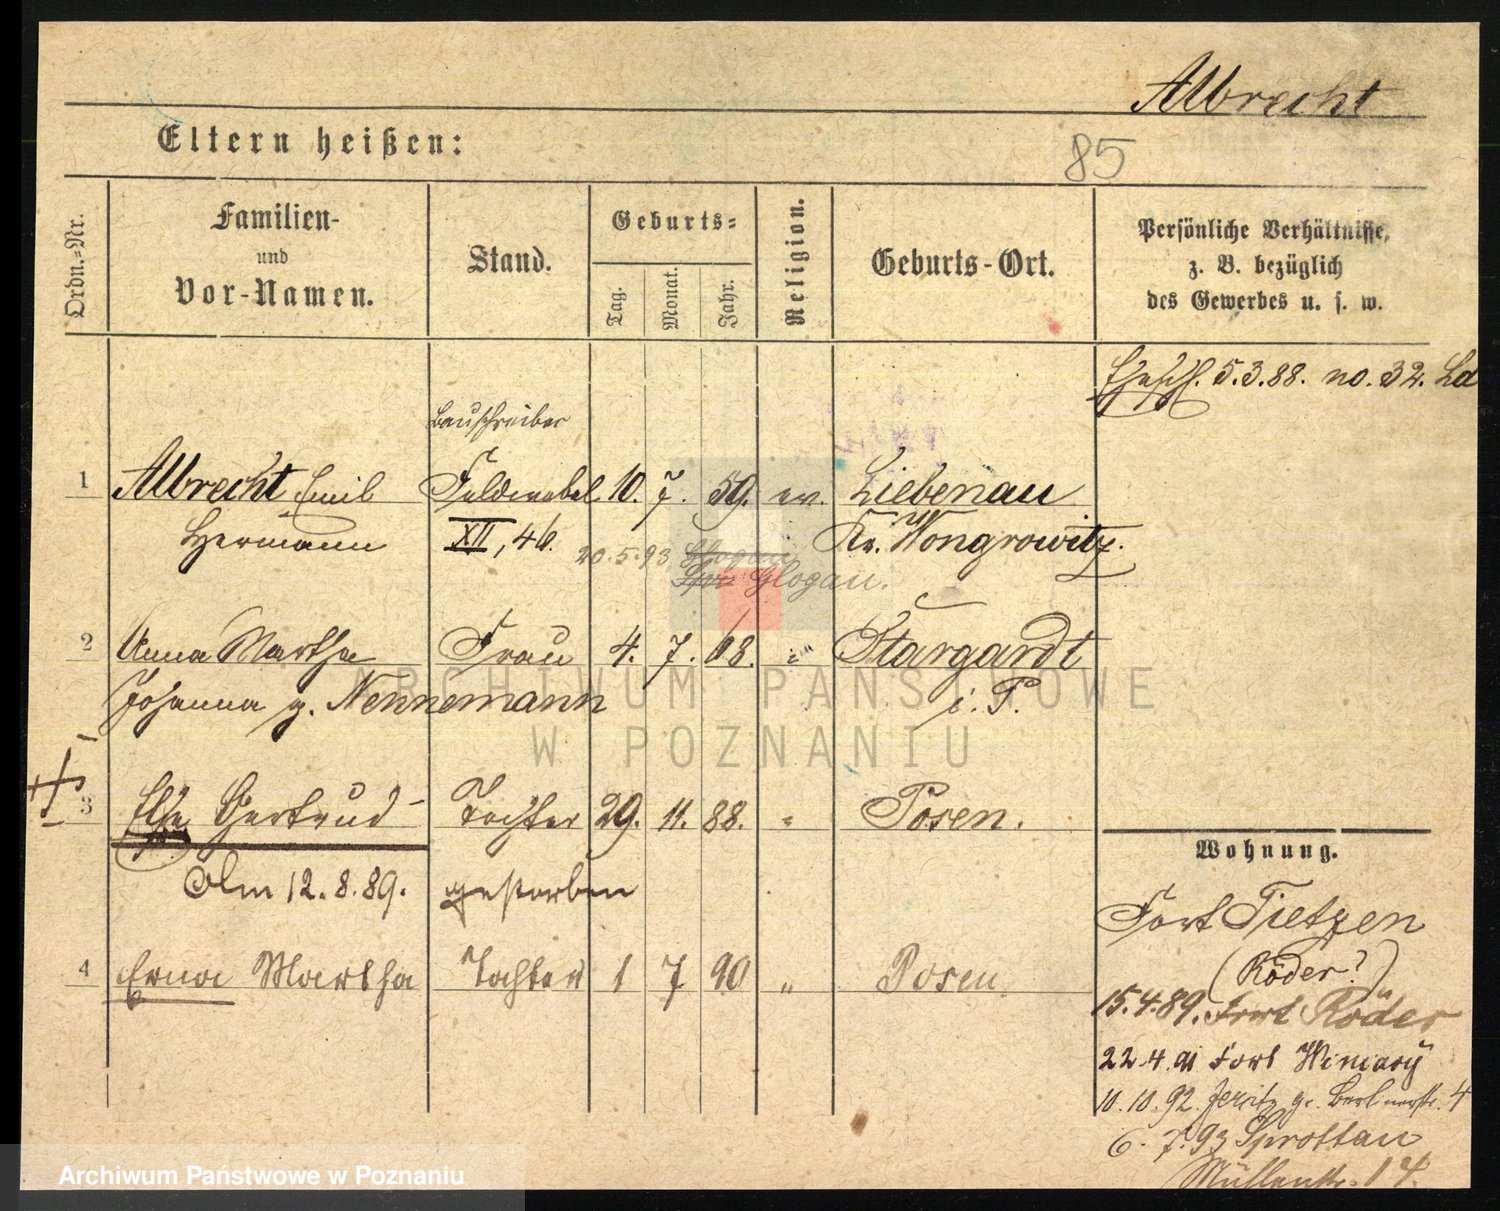 Albrecht
Eltern heißen:
85
Ordn.=Nr.
Familien-
und
Vor-Namen.
Stand.
Geburts=
Tag.
Monat.
Jahr.
Religion.
Geburts-Ort.
Persönliche Verhältnisse,
z. B. bezüglich
des Gewerbes u. s. w.
Ehesch. 5.3.88. no. 32. Ld
Bauschreiber
1 Albrecht Emil Feldwebel 10. 7. 59. ev. Liebenau
Hermann XII, 46. Kr. Wongrowitz.
20.5.93 Glogau
Glogau.
2 Anna Martha Frau 4. 7. 68. " Stargardt
Johanna g. Nennemann i. P.
3 Else Gertrud Tochter 29. 11. 88. " Posen.
Am 12.8.89. gestorben
4 Erna Martha Tochter 1 7 90 " Posen.
Wohnung.
Fort Tietzen
(Röder?)
15.4.89. Fort Röder
22.4.91 Fort Winiary
10.10.92. Jersitz gr. Berlinerstr. 4
6. 7. 93 Sprottau
Mühlenstr. 14.
ARCHIWUM PAŃSTWOWE
W POZNANIU
Archiwum Państwowe w Poznaniu